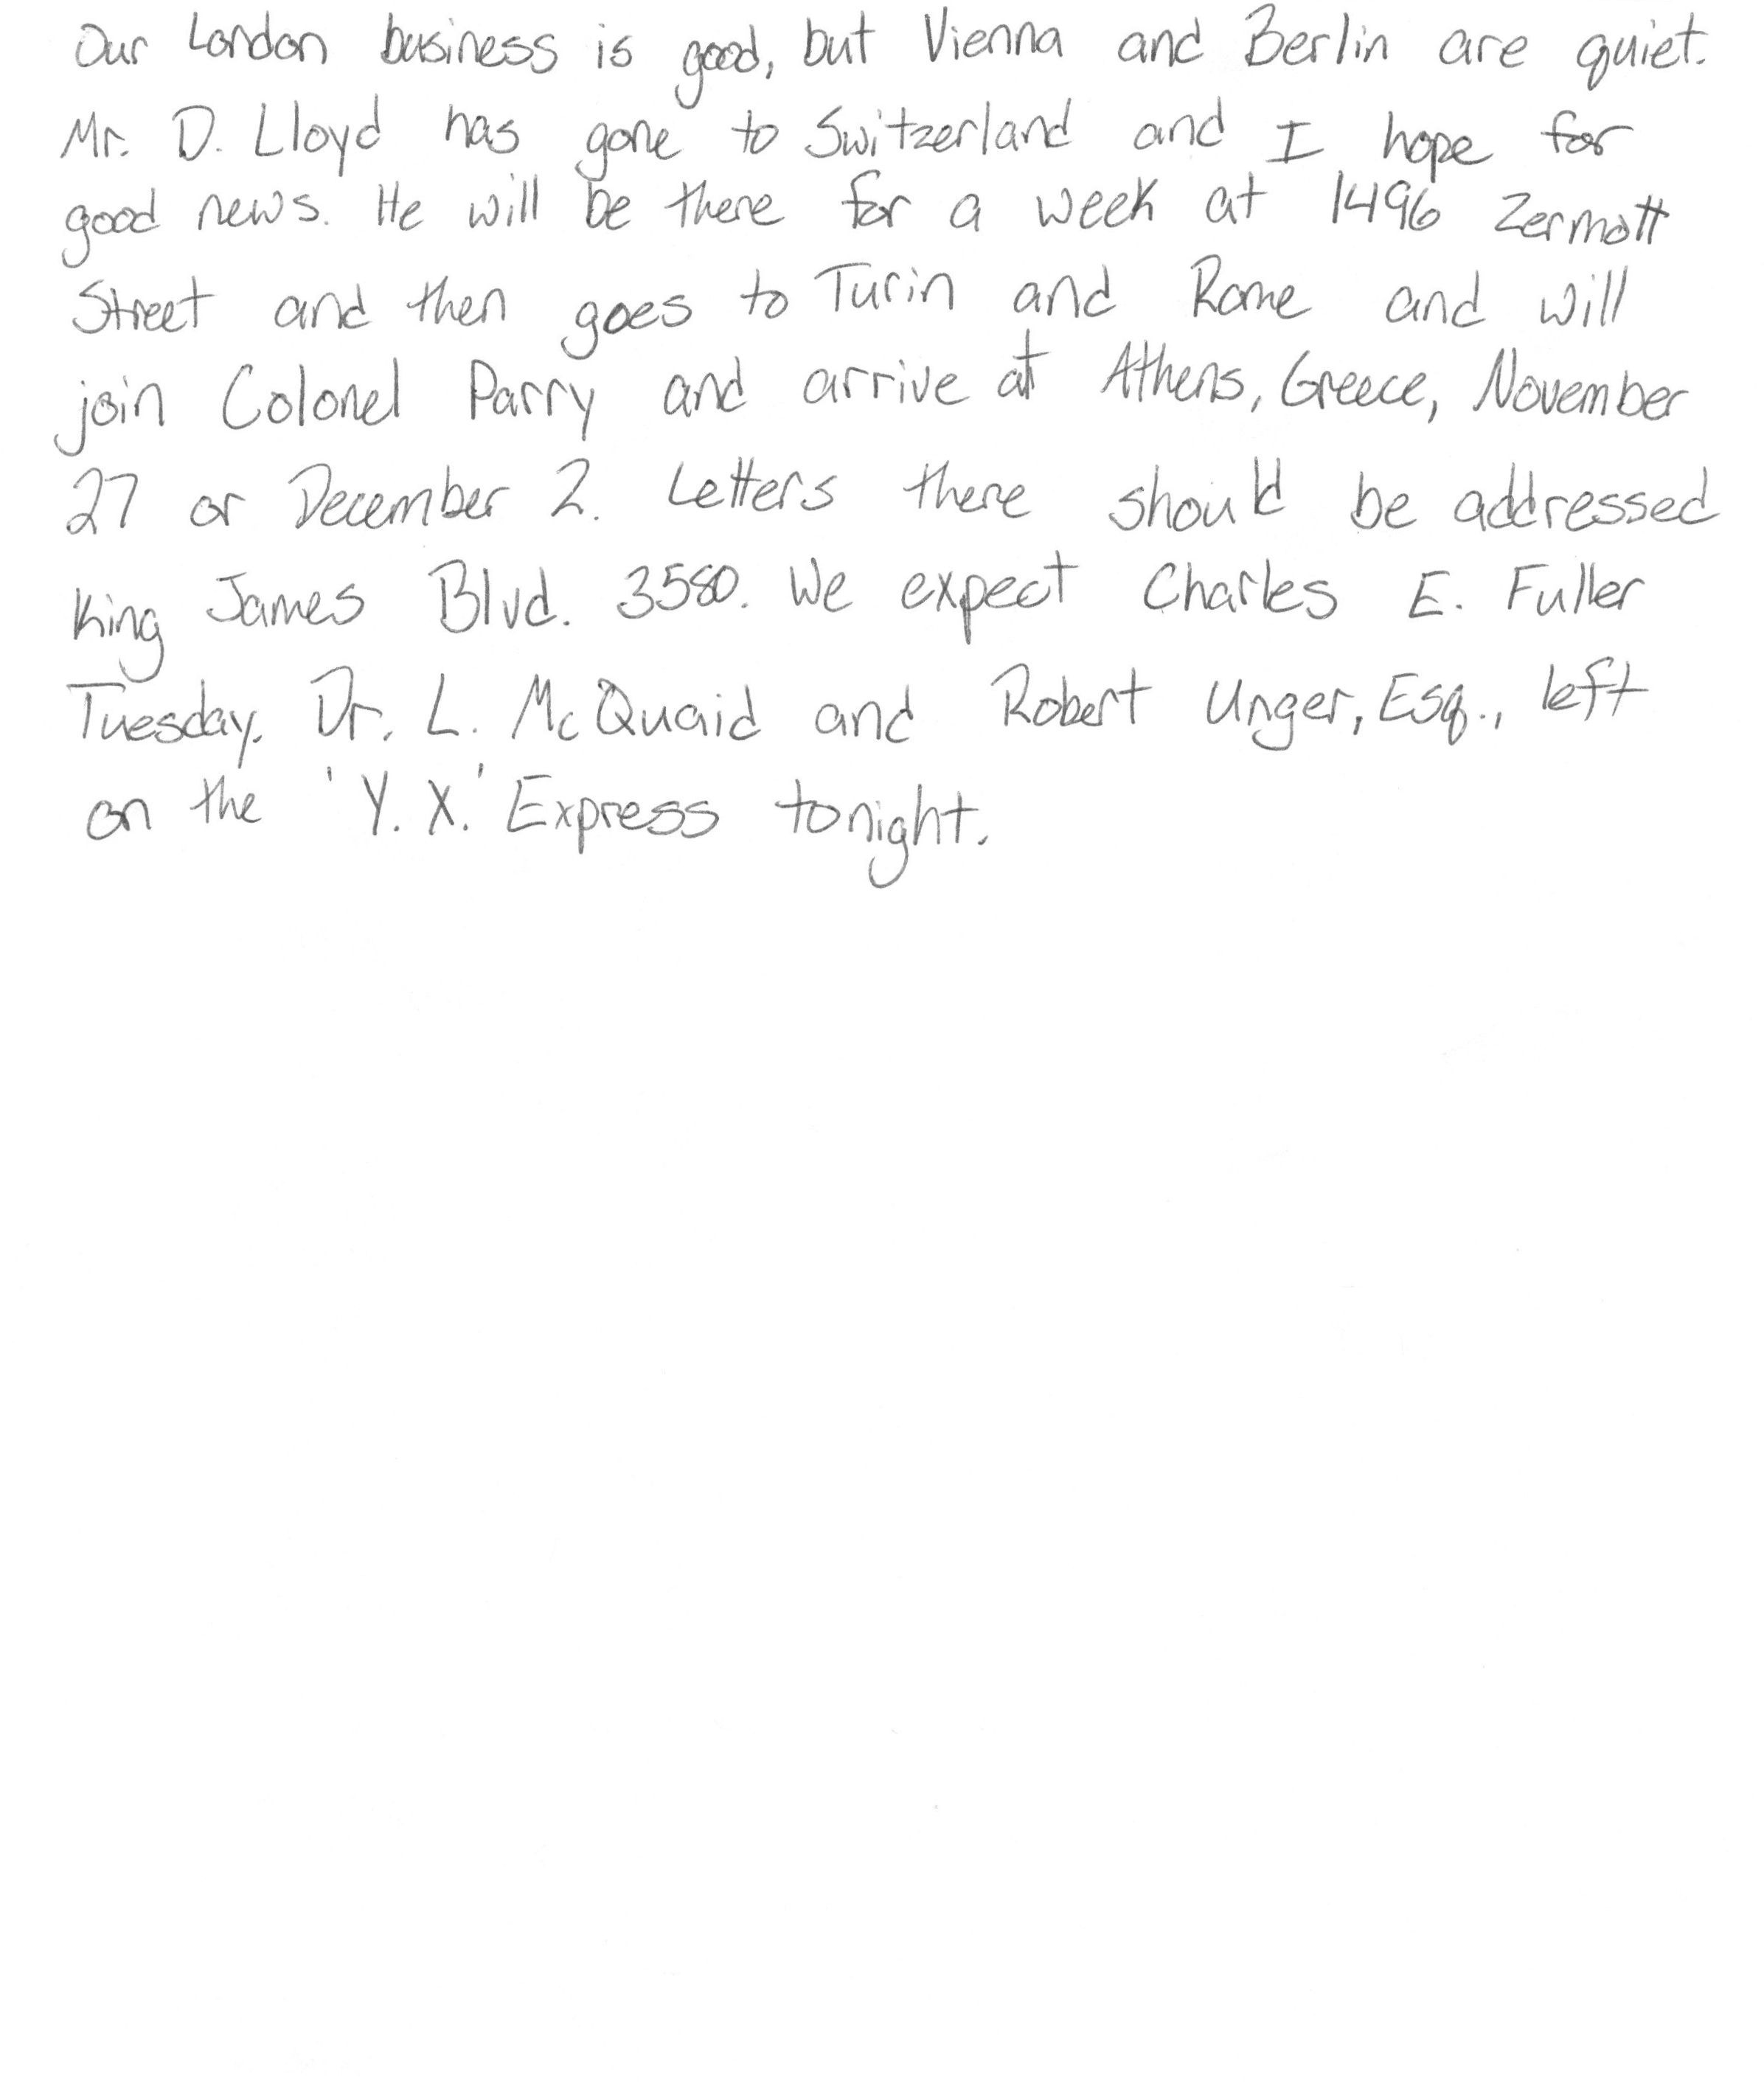 Our London business is good, but Vienna and Berlin are quiet.
Mr. D. Lloyd has gone to Switzerland and I hope for
good news. He will be there for a week at 1496 Zermott
Street and then goes to Turin and Rome and will
join Colonel Parry and arrive at Athens, Greece, November
27 or December 2. Letters there should be addressed
King James Blvd. 3580. We expect Charles E. Fuller
Tuesday. Dr. L. McQuaid and Robert Unger, Esq., left
on the 'Y. X.' Express tonight.